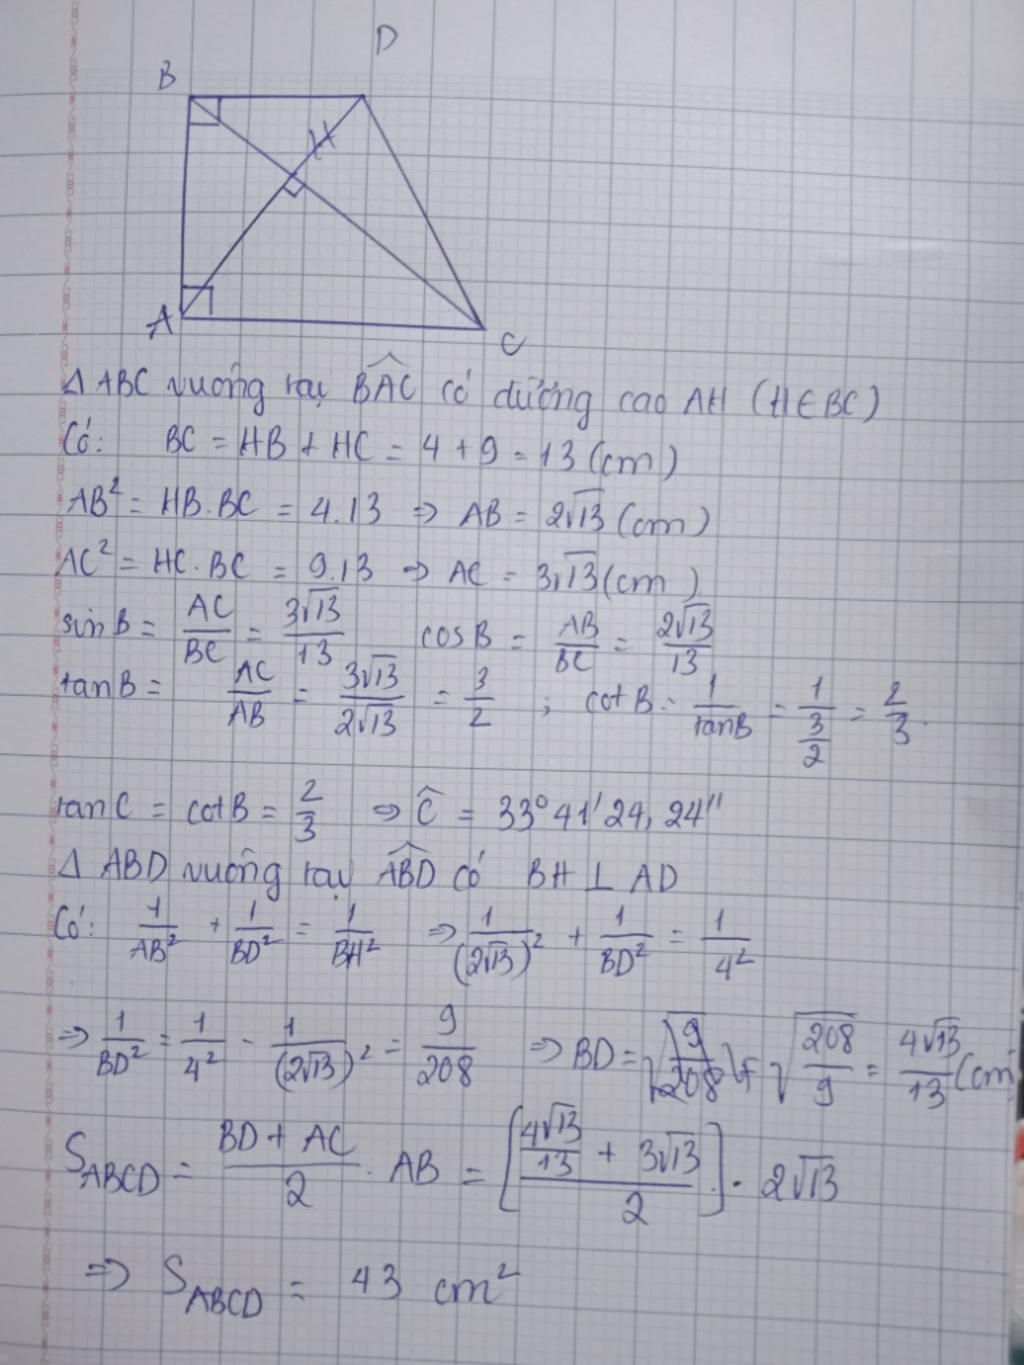 D
B
H
A
C
Δ ABC vuông tại \widehat{BAC} có đường cao AH (H ∈ BC)
Có: BC = HB + HC = 4 + 9 = 13 (cm)
AB² = HB.BC = 4.13 ⇒ AB = 2√13 (cm)
AC² = HC.BC = 9.13 ⇒ AC = 3√13 (cm)
sin B = AC/BC = 3√13/13 cos B = AB/BC = 2√13/13
tan B = AC/AB = 3√13/2√13 = 3/2 ; cot B = 1/tan B = 1/(3/2) = 2/3.
tan C = cot B = 2/3 ⇒ Ĉ = 33°41'24,24"
Δ ABD vuông tại \widehat{ABD} có BH ⊥ AD
Có: 1/AB² + 1/BD² = 1/BH² ⇒ 1/(2√13)² + 1/BD² = 1/4²
⇒ 1/BD² = 1/4² - 1/(2√13)² = 9/208 ⇒ BD = √(208/9) = 4√13/13 (cm
S_{ABCD} = (BD + AC)/2 . AB = [(4√13/13 + 3√13)/2] . 2√13
⇒ S_{ABCD} = 43 cm²